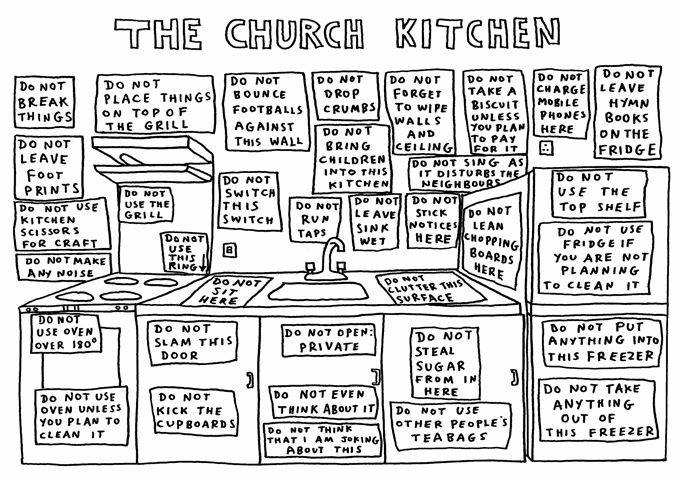 THE CHURCH KITCHEN
DO NOT
BREAK
THINGS
DO NOT
PLACE THINGS
ON TOP OF
THE GRILL
DO NOT
BOUNCE
FOOTBALLS
AGAINST
THIS WALL
DO NOT
DROP
CRUMBS
DO NOT
FORGET
TO WIPE
WALLS
AND
CEILING
DO NOT
TAKE A
BISCUIT
UNLESS
YOU PLAN
TO PAY
FOR IT
DO NOT
CHARGE
MOBILE
PHONES
HERE
DO NOT
LEAVE
HYMN
BOOKS
ON THE
FRIDGE
DO NOT
LEAVE
FOOT
PRINTS
DO NOT
BRING
CHILDREN
INTO THIS
KITCHEN
DO NOT SING AS
IT DISTURBS THE
NEIGHBOURS
DO NOT USE
KITCHEN
SCISSORS
FOR CRAFT
DO NOT
USE THE
GRILL
DO NOT
SWITCH
THIS
SWITCH
DO NOT
RUN
TAPS
DO NOT
LEAVE
SINK
WET
DO NOT
STICK
NOTICES
HERE
DO NOT
LEAN
CHOPPING
BOARDS
HERE
DO NOT
USE THE
TOP SHELF
DO NOT MAKE
ANY NOISE
DO NOT
USE
THIS
RING
DO NOT
USE
FRIDGE IF
YOU ARE NOT
PLANNING
TO CLEAN IT
DO NOT
SIT
HERE
DO NOT
CLUTTER THIS
SURFACE
DO NOT
USE OVEN
OVER 180°
DO NOT
SLAM THIS
DOOR
DO NOT OPEN:
PRIVATE
DO NOT
STEAL
SUGAR
FROM IN
HERE
DO NOT PUT
ANYTHING INTO
THIS FREEZER
DO NOT USE
OVEN UNLESS
YOU PLAN TO
CLEAN IT
DO NOT
KICK THE
CUPBOARDS
DO NOT EVEN
THINK ABOUT IT
DO NOT THINK
THAT I AM JOKING
ABOUT THIS
DO NOT USE
OTHER PEOPLE'S
TEABAGS
DO NOT TAKE
ANYTHING
OUT OF
THIS FREEZER